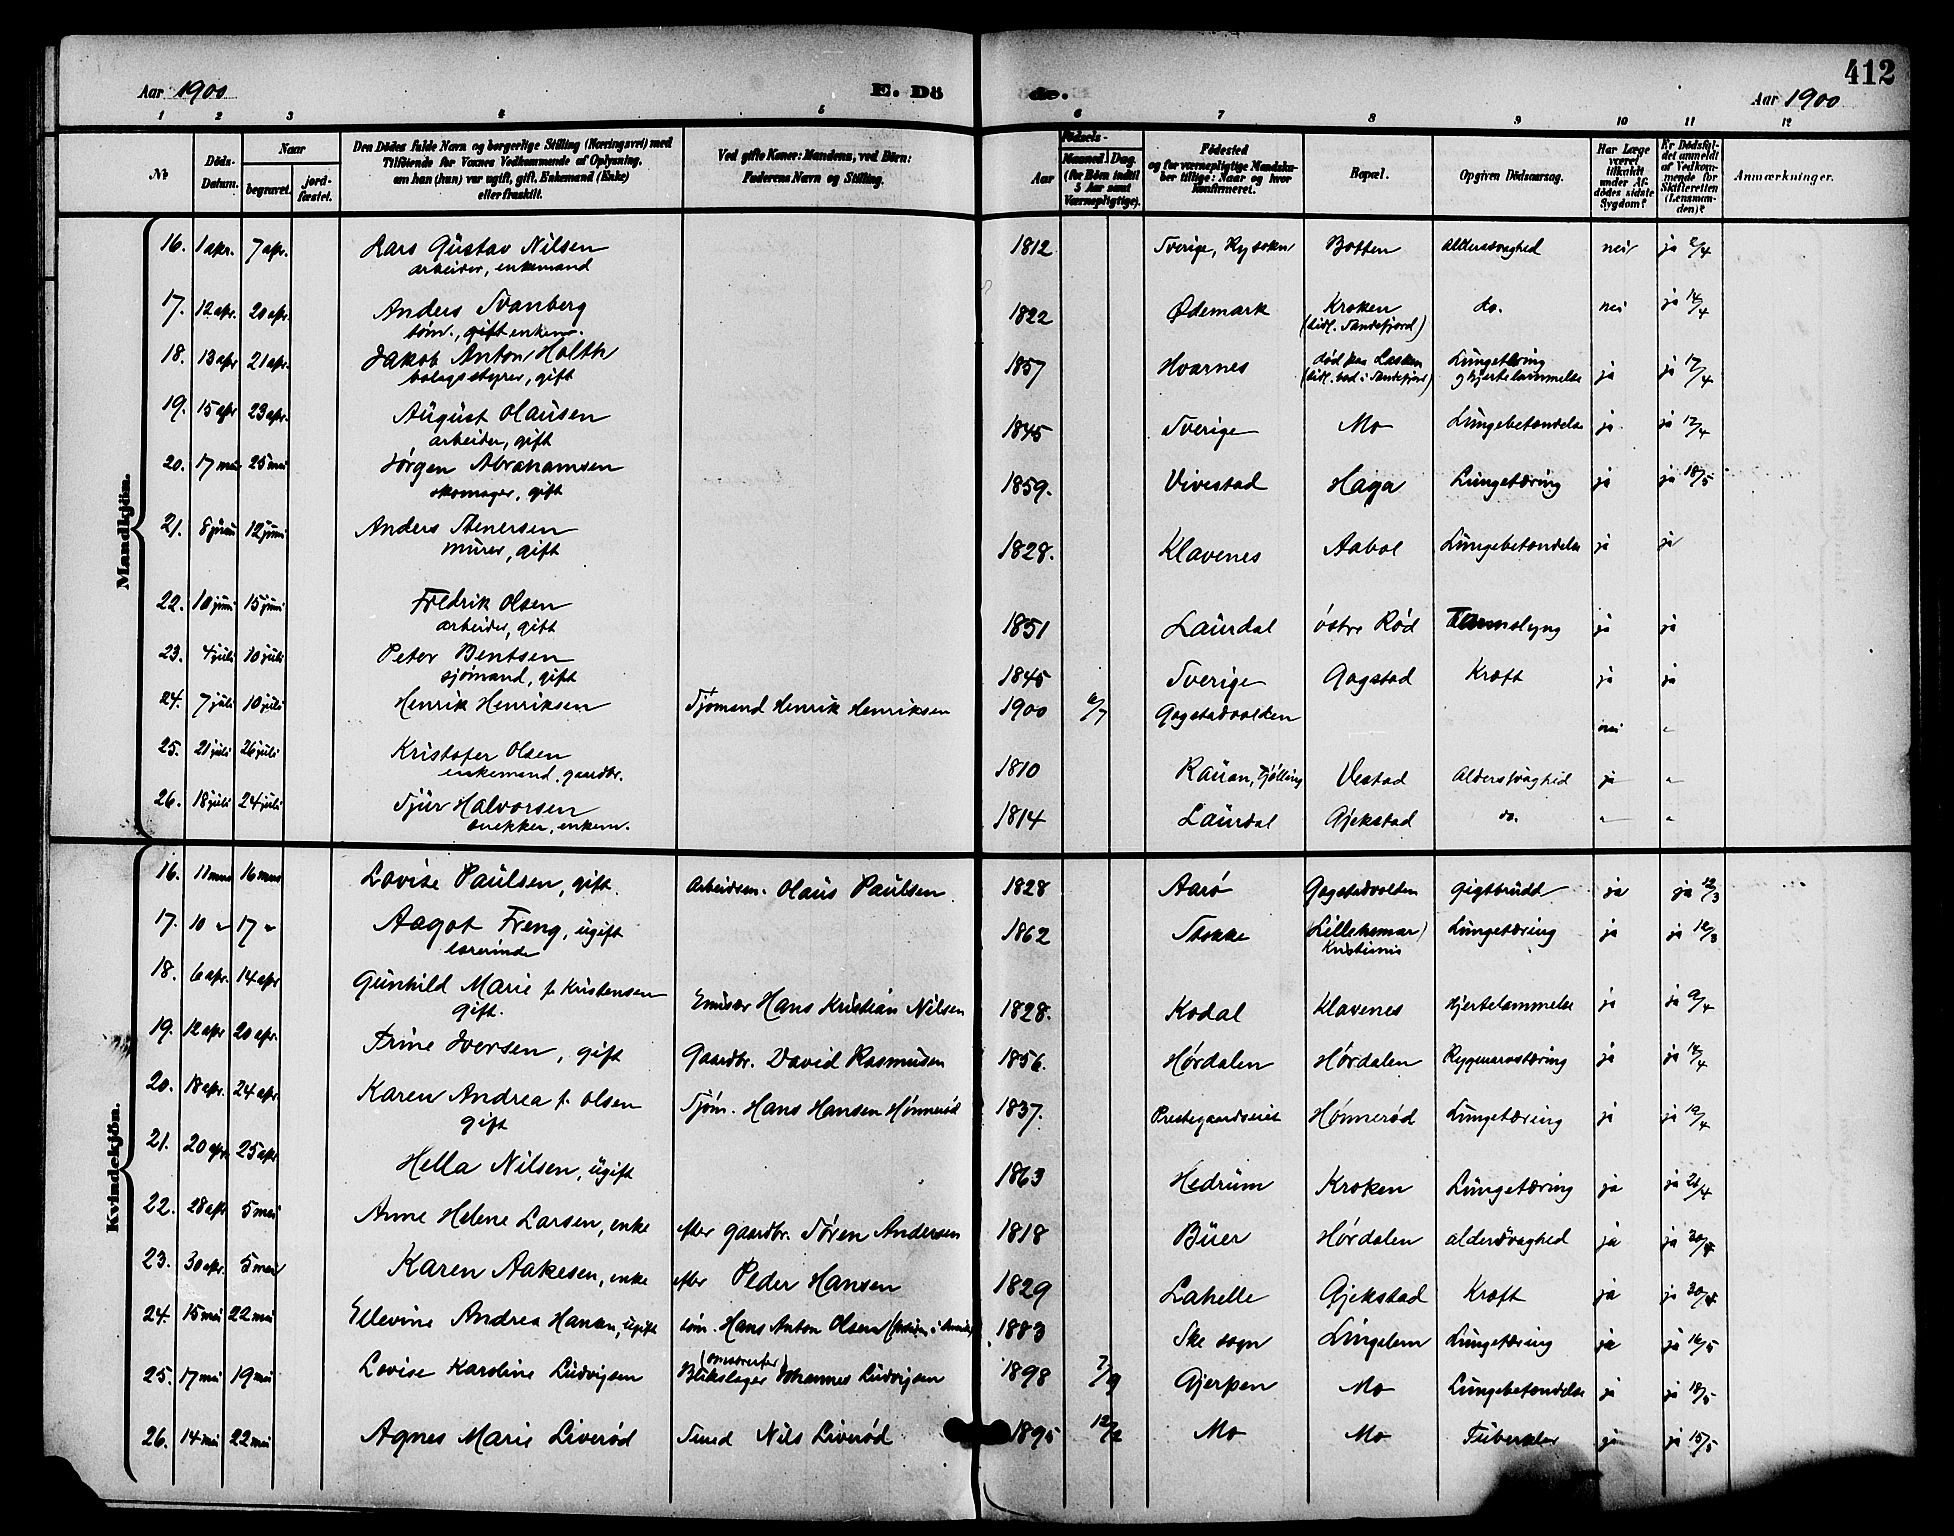 Aar 1900 E. Döde. Aar 1900 412
1 2 3 4 5 6 7 8 9 10 11 12
No. Döds-Datum. Naar begravet. jordfæstet. Den Dödes fulde Navn og borgerlige Stilling (Næringsvei) med Tilföiende for Voxnes Vedkommende af Oplysning, om han (hun) var ugift, gift, Enkemand (Enke) eller fraskilt. Ved gifte Koner: Mandens, ved Börn: Faderens Navn og Stilling. Födsels- Aar Maaned Dag. (for Börn indtil 5 Aar samt Værnepligtige). Födested og for værnepligtige Mandskaber tillige: Naar og hvor konfirmeret. Bopæl. Opgiven Dödsaarsag. Har Læge været tilkaldt under Afdödes sidste Sygdom? Er Dödsfaldet anmeldt af Vedkommende for Skifteretten (Lensmanden)? Anmærkninger.
Mandkjön.
16. 1 apr. 7 apr. Lars Gustav Nilsen 1812 Sverige, Botten Alderssvaghed nei ja 2/4
arbeider, enkemand
17. 12 apr. 20 apr. Anders Svanberg 1822 Ødemark Kroken do. nei ja 14/4
tøm., gift enkem. (tidl. Sandefjord)
18. 13 apr 21 apr. Jakob Anton Holth 1857 Hvarnes død paa Lungetæring ja ja 17/4
bolagsstyrer, gift (tidl. bod. i Sandefjord) og hjertelammelse
19. 15 apr 23 apr. August Olausen 1845 Sverige Mo Lungebetændelse ja ja 17/4
arbeider, gift
20. 17 mai 25 mai Jørgen Abrahamsen 1859. Vivestad Haga Lungetæring ja ja 18/5
skomager, gift
21. 8 juni 12 juni Anders Stenersen 1828. Klavenes Aabol Lungebetændelse ja ja
murer, gift
22. 10 juni 15 juni Fredrik Olsen 1851 Laurdal østre Rød Tarmslyng ja ja
arbeider, gift
23. 4 juli 10 juli Peter Bentsen 1845 Sverige Gogstad Kræft ja ja
sjømand, gift
24. 7 juli 10 juli Henrik Henriksen Sjømand Henrik Henriksen 1900 6/7 Gogstadvolden nei "
25. 21 juli 26 juli Kristofer Olsen 1810 Rauan, Tjølling Vestad Alderssvaghed ja "
enkemand, gaardbr.
26. 18 juli 24 juli Sjur Halvorsen 1814 Laurdal Gjekstad do. " "
snekker, enkem.
Kvindekjön.
16. 11 mars 16 mars Lovise Paulsen, gift. Arbeidsm. Olaus Paulsen 1828 Aarø Gogstadvolden gigtbrudd ja ja 12/3
17. 10 " 17 " Aagot Freng, ugift 1862 Stokke (Lillehamar) Lungetæring ja ja 12/3
lærerinde Kristiania
18. 6 apr. 14 apr Gunhild Marie f. Kristensen Emisær Hans Kristian Nilsen 1828. Kodal Klavenes Hjertelammelse ja ja 9/4
gift.
19. 12 apr 20 apr. Trine Iversen, gift Gaardbr. David Rasmussen 1856. Hørdalen Hørdalen Rygmarvstæring ja ja 14/4
20. 18 apr. 24 apr. Karen Andrea f. Olsen Sjøm. Hans Hansen Hønnerød 1837. Prestegaardseiet Hønnerød Lungetæring ja ja 19/4
gift
21. 20 apr. 25 apr Hella Nilsen, ugift 1863 Hedrum Kroken Lungetæring ja ja 21/4
22. 28 apr 5 mai Anne Helene Larsen, enke efter gaardbr. Søren Andersen 1818 Buer Hørdalen alderdsvaghed ja ja 30/4
23. 30 apr. 5 mai Karen Aakesen, enke efter Peder Hansen 1829 Lahelle Gjekstad Kræft ja ja 30/4
24. 15 mai 22 mai Ellevine Andrea Hansen, ugift tøm. Hans Anton Olsen 1883 Ske sogn Lingelem Lungetæring ja ja 16/5
25. 17 mai 19 mai Lovise Karoline Ludvigsen Blikslager Johannes Ludvigsen 1898 7/9 Gjerpen Mo Lungebetændelse ja ja 18/5
26. 14 mai 22 mai Agnes Marie Liverød Smed Nils Liverød 1895 12/2 Mo Mo ja ja 15/5